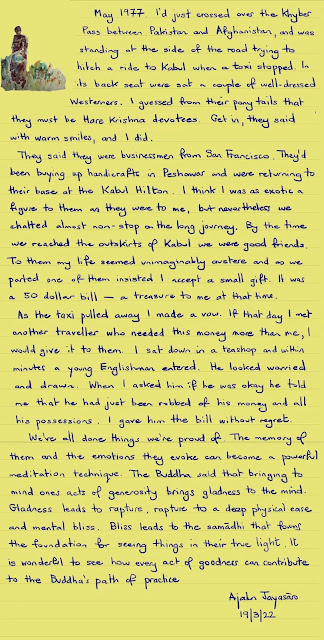 May 1977. I'd just crossed over the Khyber
Pass between Pakistan and Afghanistan, and was
standing at the side of the road trying to
hitch a ride to Kabul when a taxi stopped. In
its back seat were sat a couple of well-dressed
Westerners. I guessed from their pony tails that
they must be Hare Krishna devotees. Get in, they said
with warm smiles, and I did.
They said they were businessmen from San Francisco. They'd
been buying up handicrafts in Peshawar and were returning to
their base at the Kabul Hilton. I think I was as exotic a
figure to them as they were to me, but nevertheless we
chatted almost non-stop on the long journey. By the time
we reached the outskirts of Kabul we were good friends.
To them my life seemed unimaginably austere and as we
parted one of them insisted I accept a small gift. It was
a 50 dollar bill — a treasure to me at that time.
As the taxi pulled away I made a vow. If that day I met
another traveller who needed this money more than me, I
would give it to them. I sat down in a teashop and within
minutes a young Englishman entered. He looked worried
and drawn. When I asked him if he was okay he told
me that he had just been robbed of his money and all
his possessions. I gave him the bill without regret.
We've all done things we're proud of. The memory of
them and the emotions they evoke can become a powerful
meditation technique. The Buddha said that bringing to
mind ones acts of generosity brings gladness to the mind.
Gladness leads to rapture, rapture to a deep physical ease
and mental bliss. Bliss leads to the samādhi that forms
the foundation for seeing things in their true light. It
is wonderful to see how every act of goodness can contribute
to the Buddha's path of practice.
Ajahn Jayasāro
19/3/22